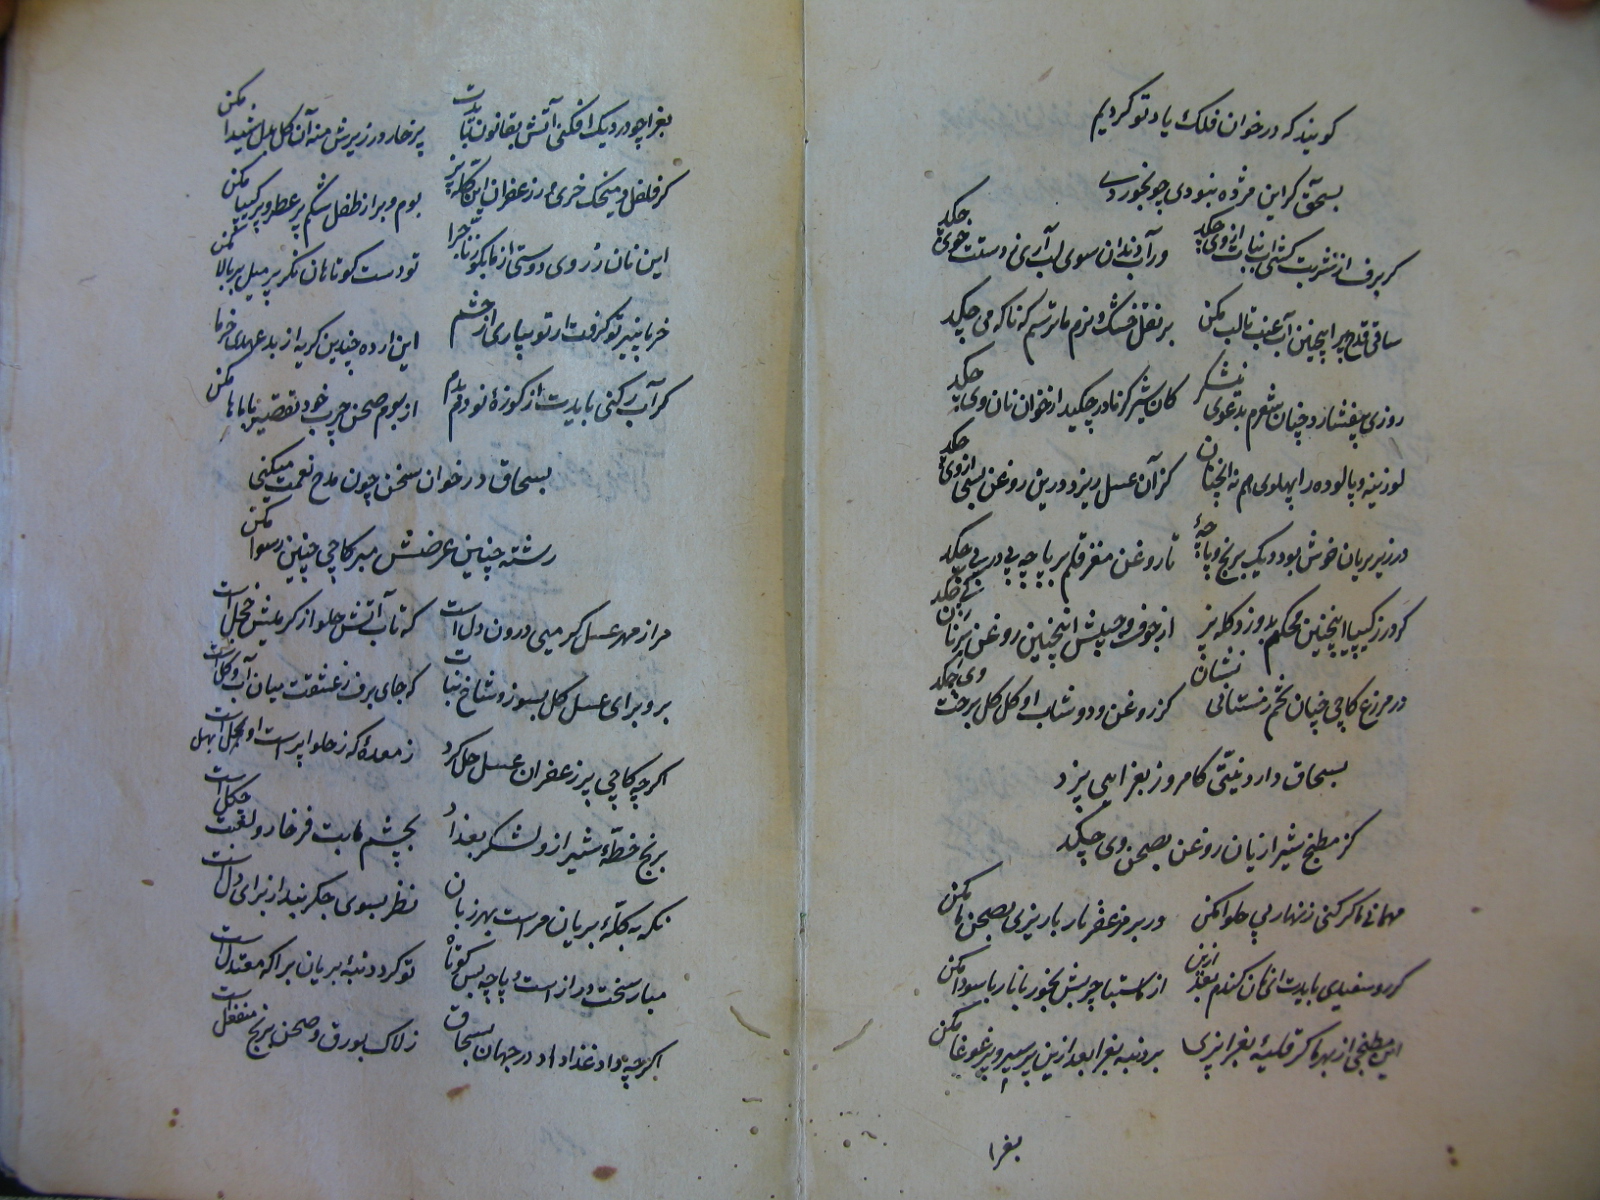 کویند که در خوان فلک یاد تو کردیم
بسحق کر این مژده نبودی چو نخوردی
کر برف از شربت کشی آب نبات از وی چکد ور آب دندان سوی لب آری ز دستت خوی چکد
ساقی قدح پر اینچنین آب عنب غالب مکن بر نقل خشک بزم ما ترسم که ناکه می چکد
روزی بیفشارد چنان شعرم بدعوی نیشکر کان شیر کز مادر چکید از خوان نان وی چکد
لوزینه و پالوده را پهلوی هم نه آنچنان کز آن عسل ریزد درین روغن بسی از وی چکد
در زیر بریان خوش بود دیک برنج و پاچه تا روغن مغز قلم بر پاچه پی در پی چکد
کر درز کیپا اینچنین محکم بدوزد کله پز از جوف و جیبش اینچنین روغن بریزنان کی چکد
در مرزع کاچی چنان تخم زمستانی نشان کز روغن و دوشاب او کل کل برخت وی چکد
بسحاق دارد نیتی کامروز بغرا می پزد
کز مطبخ شیرازیان روغن بصحن وی چکد
مهمانی ما کر کنی زنهار بی حلوا مکن ور بر مزعفر نار باریزی بصحن ما مکن
کر رو سفیدی بایدت از نان کندم مغذ ازین از کاسها چربش بخور با نار با سودا مکن
این مطبخی از بهر ما کر قلیه بغرا پزی بر دنبه بغرا بعد ازین پر سیر و پر غوغا مکن
بغرا
بغرا چو در دیک افکنی آتش بقانون تابدت پر خار در زیرش منه آن کل بلبل شیدا مکن
کر فلفل و میخک خری در زعفران این کله پز بوم و بر از طفل شکم پر عطر و پر کیپا مکن
این نان ز روی دوستی از ما بکو زناجرا تو دست کوتاهان نکر پر میل بر بالا مکن
خرما پنیر تو کرفت ار تو بیاری از چشم این ارده چندین کریه از بدعهدی خرما مکن
کر آب رکنی بایدت از کوزه نو دمبدم از بوم صحن چرب خود تقصیر با ما مکن
بسحاق در خوان سخن چون مدح نعمت میکنی
رشته چنین عرضش مبر کاچی چنین رسوا مکن
مرا ز مهر عسل کرمیی درون دلست که تاب آتش حلوا ز کرمیش خجلست
برو برای عسل کل بسوز و شاخ نبات که جای برف ز عشقت میان آب و کلست
اکر چه کاچی پر زعفران عسل حل کرد ز معدهٔ که ز حلوا پرست او بحلست بهل
برنج خطهٔ شیراز و لشکر بغداد بچشم ما بت فرخار و لعبت چکلست
نکه به کلهٔ بریان مراست بهر زبان نظر بسوی جکر بند از برای دلست
مبار سخت دراز است و پاچه بس کوتاه تو کرد دنبهٔ بریان برا که معتدلست
اکر چه داد غذا داد در جهان بسحاق ز لاک بورق و صحن برنج منفعلست